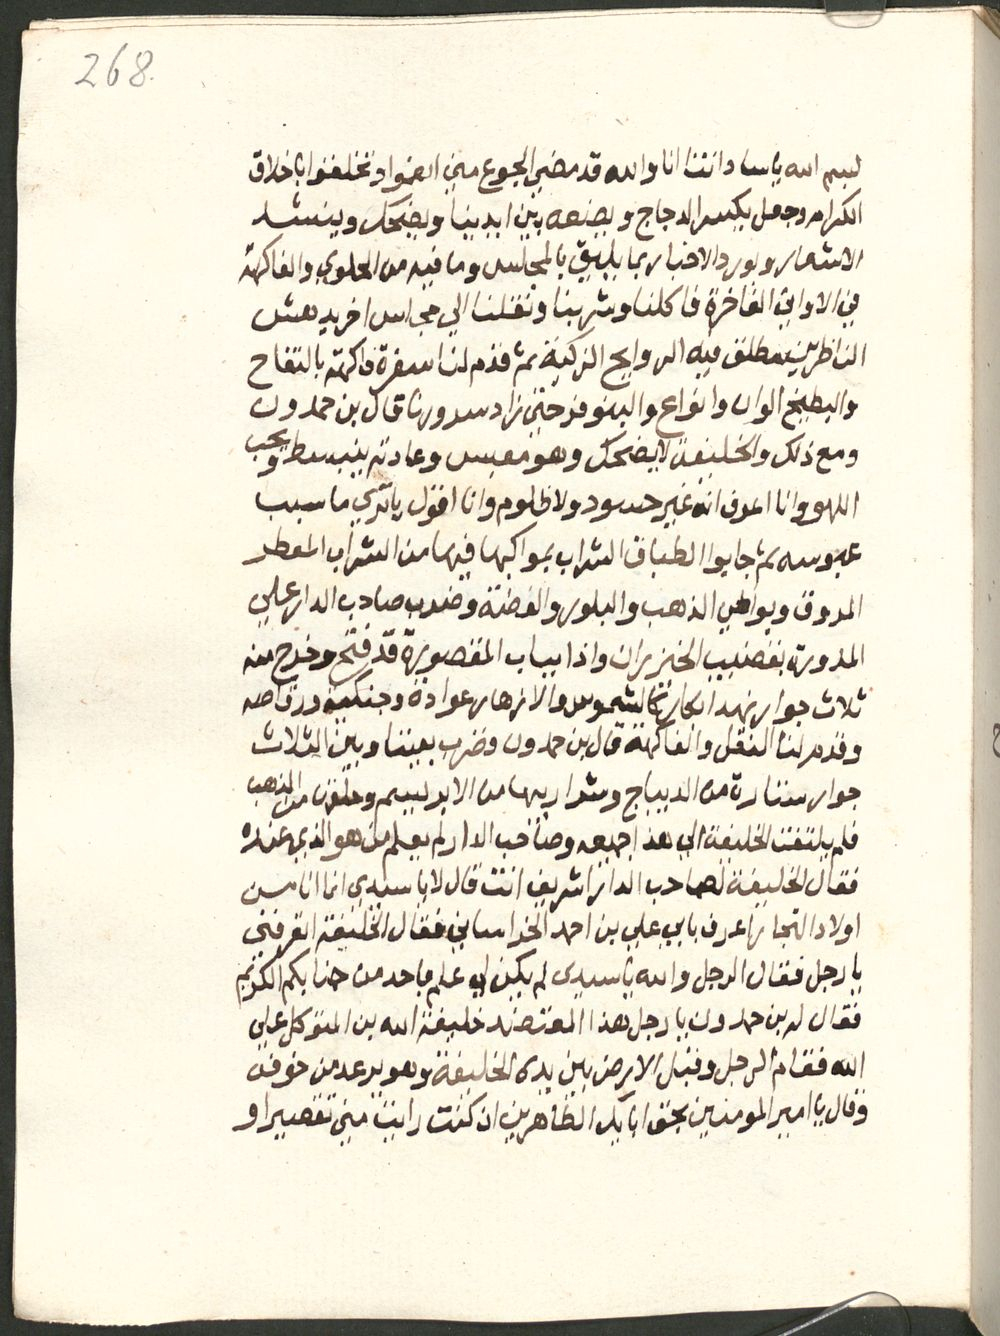 268.
لبسم الله يا ساداتنا انا والله قد مضني الجوع مني انعموا وتخلقوا باخلاق
الكرام وجعل يكسر الدجاج ويضعه بين ايدينا ويضحك وينشد
الاشعار ويورد الاخبار بما يليق بالمجلس وما فيه من الحلوي والفاكهة
في الاواني الفاخرة فاكلنا وشربنا ونقلنا الي مجلس اخر يدهش
الناظرين مطلق فيه الروايح الزكية ثم قدم لنا سفرة فاكهة بالتفاح
والبطيخ الوان وانواع والينوفر حتي زاد سرورنا قال بن حمدون
ومع ذلك والخليفة لا يضحك وهو معبس وعادته ينبسط ويحب
اللهو وانا اعرف انه غير حسود ولا ظلوم وانا اقول يا تري ما سبب
عبوسه ثم جابوا اطباق الشراب بمواكبها فيها من الشراب المعطر
المروق وبواطي الذهب والبلور والفضة وضرب صاحب الدار علي
المدورة بقضيب الخيزران واذا بباب المقصورة قد فتح وخرج منه
ثلاث جوار نهد ابكار كالشموس والازهار عوادة وجنكية ورقاصه
وقدم لنا النقل والفاكهة قال بن حمدون وضرب بيننا وبين الثلاث
جوار ستارة من الديباج وشراريبها من الابريسم وحلقها من الذهب
فلم يلتفت الخليفة الي هذا جميعه وصاحب الدار لم يعلم من هو الذي عنده
فقال الخليفة لصاحب الدار اشريف انت قال لا يا سيدي انما انا من
اولاد التجار اعرف بابي علي بن احمد الخراساني فقال الخليفة اتعرفني
يا رجل فقال الرجل والله يا سيدى لم يكن لي علم باحد من جنابكم الكريم
فقال له بن حمدون يا رجل هذا المعتضد خليفة الله بن المتوكل علي
الله فقام الرجل وقبل الارض بين يدى الخليفة وهو يرعد من خوفه
وقال يا امير المومنين بحق ابايك الطاهرين ان كنت رايت مني تقصيرا و